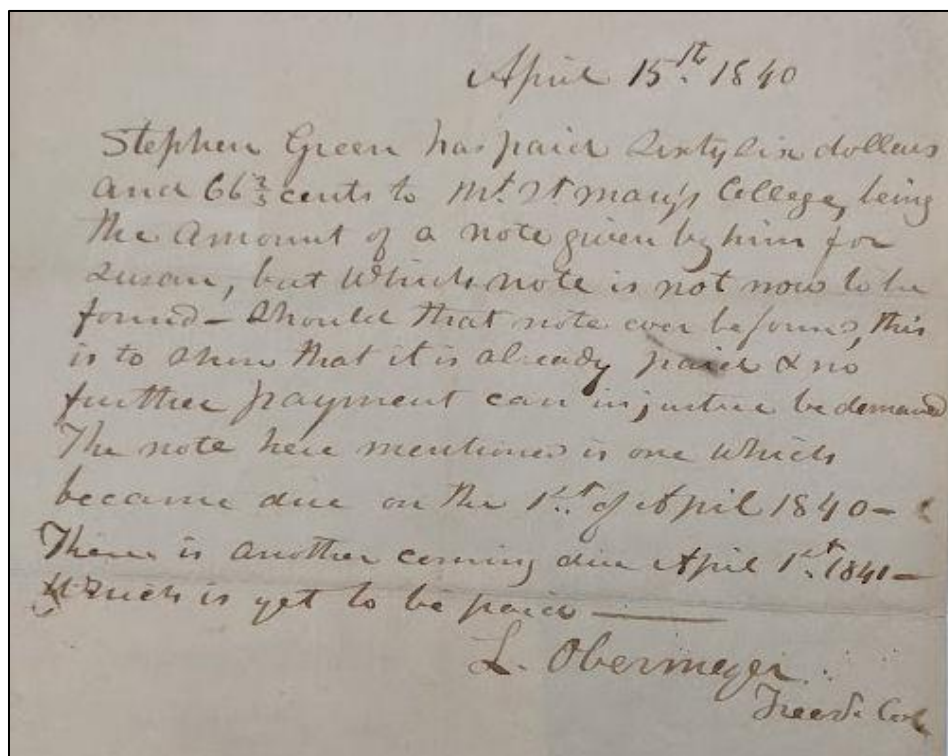 April 15th. 1840
Stephen Green has paid Sixty Six dollars
and 66 2/3 cents to Mt. St Mary's College, being
the amount of a note given by him for
Susan, but which note is not now to be
found — Should that note ever be found, this
is to show that it is already paid & no
further payment can in justice be demanded
The note here mentioned is one which
became due on the 1st. of April 1840 —
There is another coming due April 1st. 1841 —
Which is yet to be paid —
L. Obermeyer